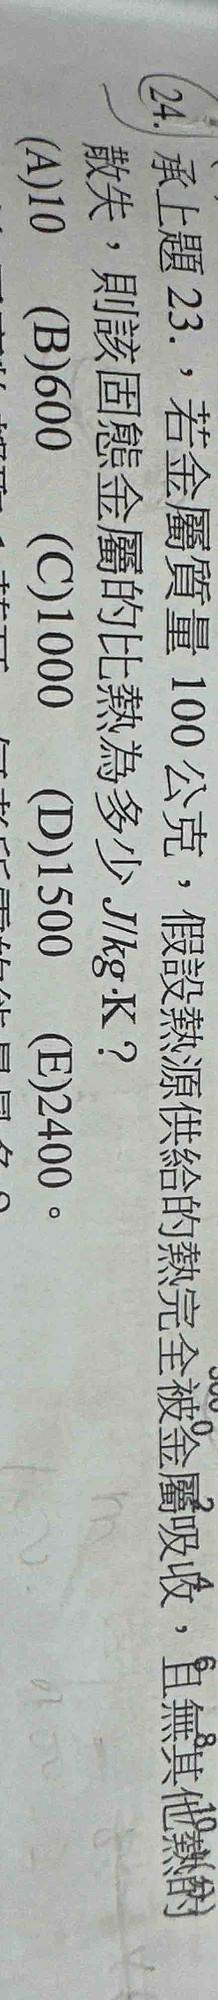 24. 承上題 23.，若金屬質量 100 公克，假設熱源供給的熱完全被金屬吸收，且無其他熱的
散失，則該固態金屬的比熱為多少 J/kg·K？
(A)10 (B)600 (C)1000 (D)1500 (E)2400。
0 2 4 6 8 10